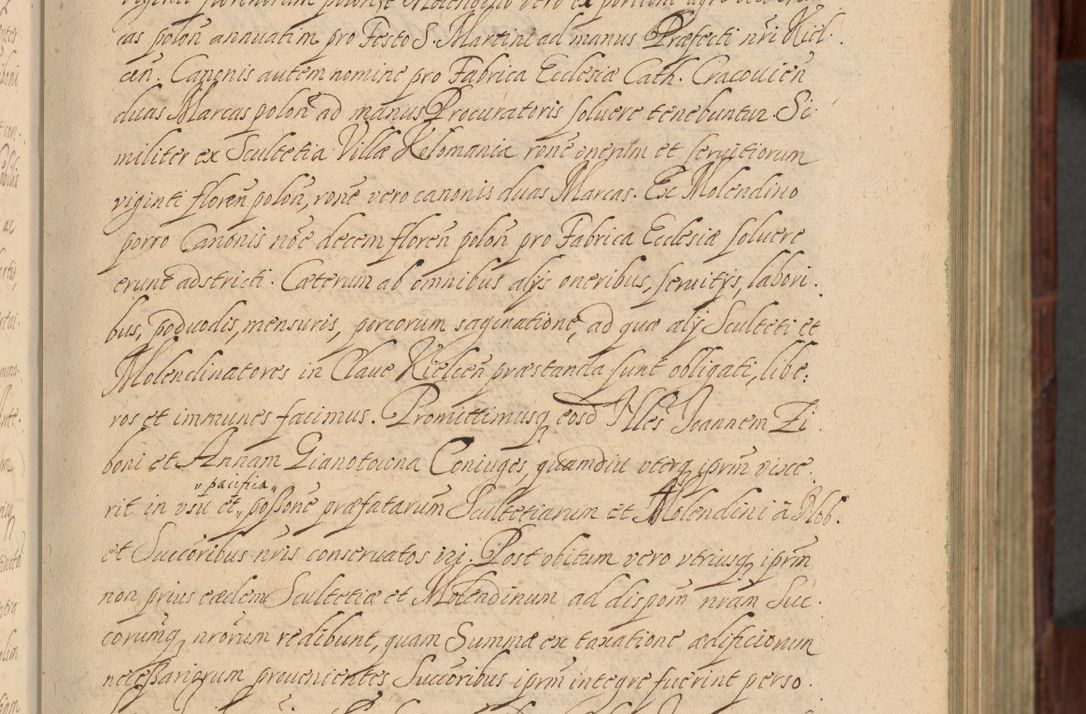 cas polon̄ annuatim pro Festo S. Martini ad manus Præfecti nr̄i Kiel-
cen̄. Canonis autem nomine pro Fabrica Ecclesiæ Cath. Cracouien̄
duas Marcas polon̄ ad manus Procuratoris soluere tenebuntur. Si-
militer ex Scultetia Villæ Kelomania rōne onerum et seruitiorum
viginti floren̄ polon̄, rōne vero canonis duas Marcas. Ex Molendino
porro Canonis nōe decem floren̄ polon̄ pro Fabrica Ecclesiæ soluere
erunt adstricti. Cæterum ab omnibus alijs oneribus, seruitijs, labori-
bus, poduodis, mensuris, porcorum saginatione, ad quæ alij Sculteti et
Molendinatores in Claue Kielcen̄ præstanda sunt obligati, libe-
ros et immunes facimus. Promittimusq eosd Illēs Joannem Zi-
boni et Annam Gianotowna Coniuges, quamdiu vterq ipr̄m vixe-
rit in vsu et „pacifica„ possone præfatarum Scultetiarum et Molendini à Nob.
et Succōribus nr̄is conseruatos iri. Post obitum vero vtriusq ipr̄m
non prius eædem Scultetiæ et Molendinum ad dispom̄ nr̄am Suc-
corumq nrōrum redibunt, quam Summæ ex taxatione ædificiorum
necessariorum prouenientes Succōribus ipr̄m integre fuerint perso-